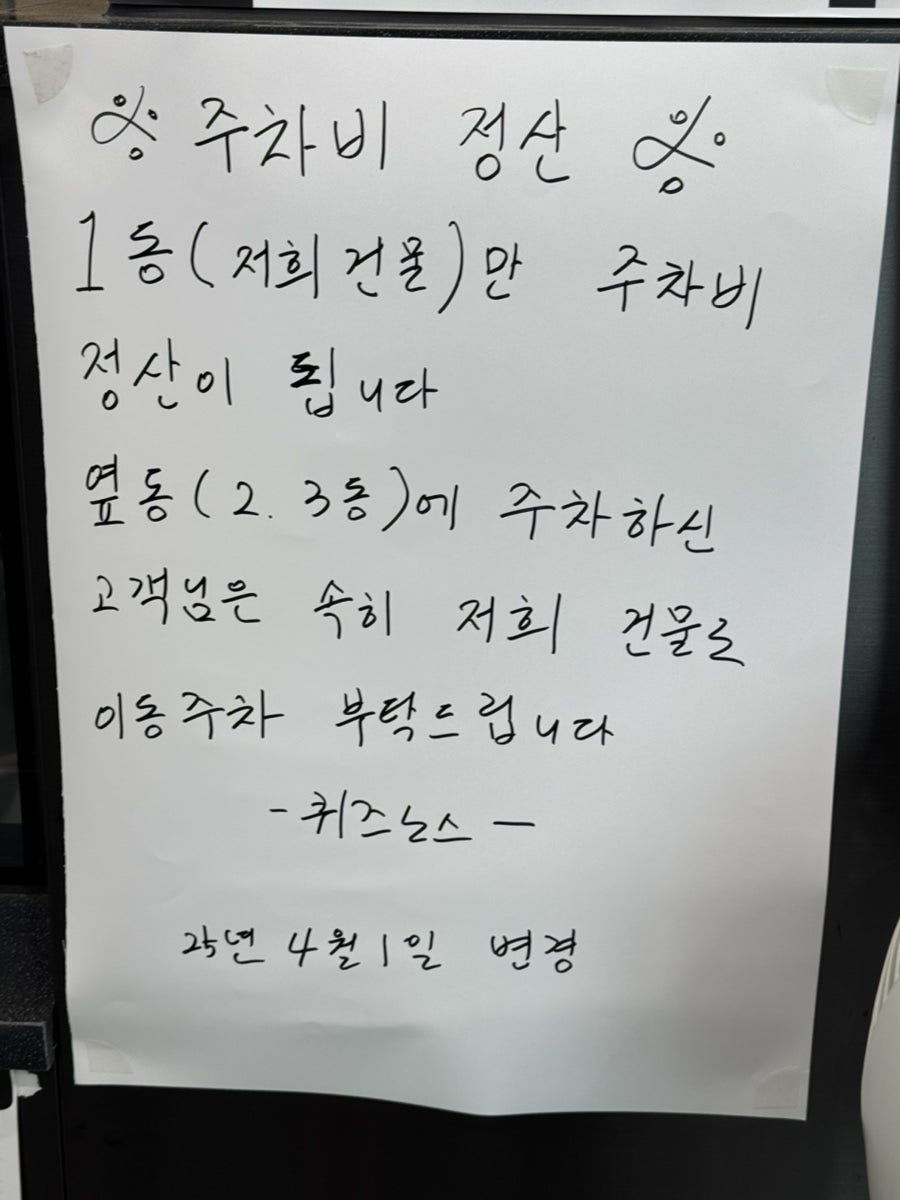 ※ 주차비 정산 ※
1동(저희 건물)만 주차비
정산이 됩니다
옆동(2. 3동)에 주차하신
고객님은 속히 저희 건물로
이동주차 부탁드립니다
- 퀴즈노스 -
25년 4월 1일 변경